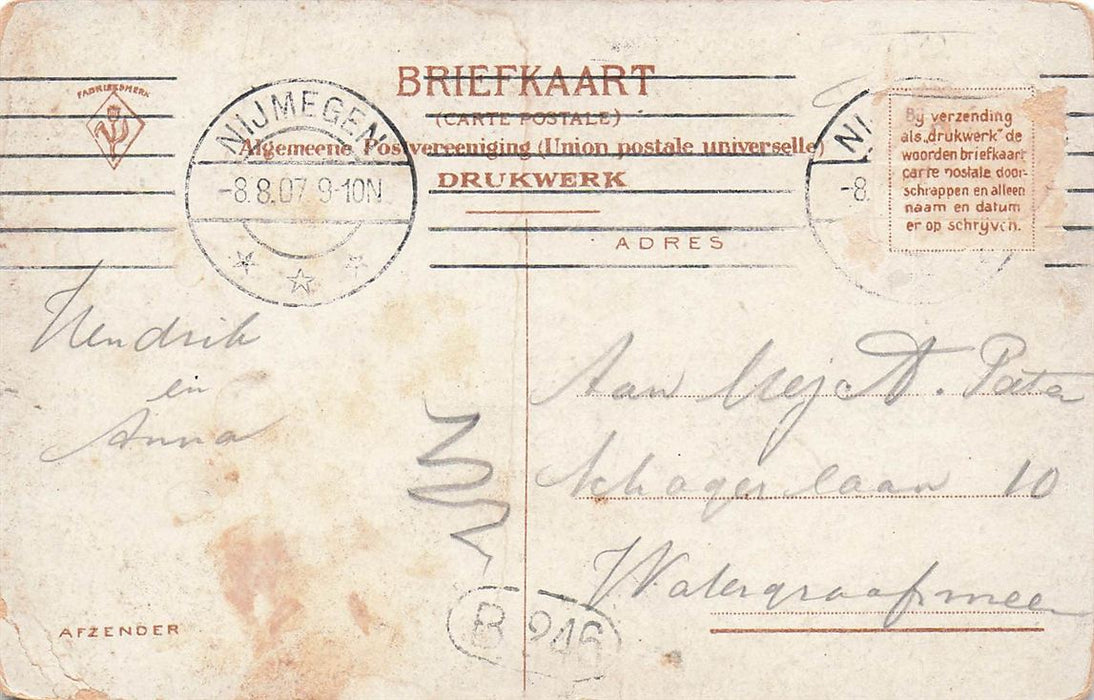 FABRIEKSMERK
BRIEFKAART
(CARTE POSTALE)
Algemeene Postvereeniging (Union postale universelle)
DRUKWERK
NIJMEGEN
-8.8.07 9-10N
NI
-8.
By verzending
als „drukwerk” de
woorden briefkaart
carte postale door-
schrappen en alleen
naam en datum
er op schryven.
ADRES
Hendrik
en
Anna
Aan Mej A. Pater
Schagerlaan 10
Watergraafsmeer
AFZENDER
B 946